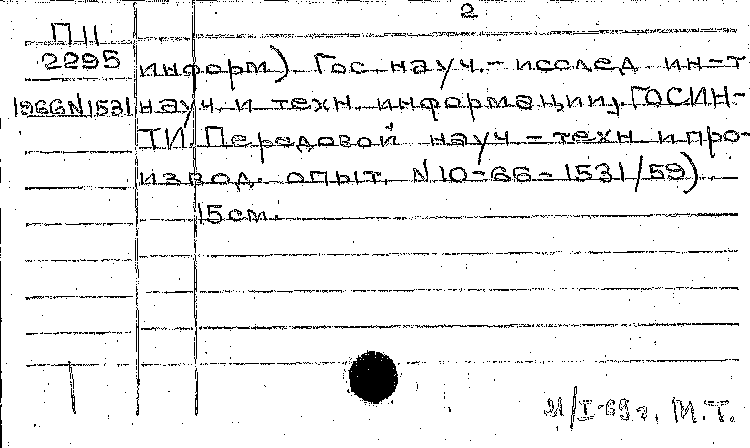 2
П 11
2295 информ). Гос. науч.- исслед. ин-т
1966N1531 науч. и техн. информации, ГОСИН-
ТИ. Передовой науч-техн. и про-
извод. опыт. N10-66-1531/59).
15см.
/I-69г. М.Т.